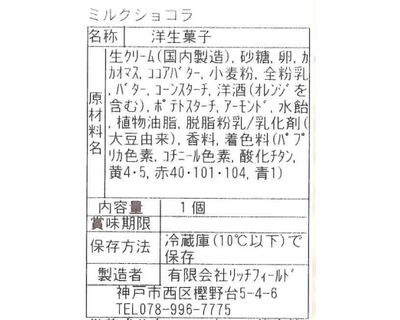 ミルクショコラ
名称 洋生菓子
原材料名
生クリーム(国内製造), 砂糖, 卵, カ
カオマス, ココアバター, 小麦粉, 全粉乳
, バター, コーンスターチ, 洋酒(オレンジを
含む), ポテトスターチ, アーモンド, 水飴
, 植物油脂, 脱脂粉乳/乳化剤(
大豆由来), 香料, 着色料(パプ
リカ色素, コチニール色素, 酸化チタン,
黄4・5, 赤40・101・104, 青1)
内容量 1個
賞味期限
保存方法 冷蔵庫(10℃以下)で
保存
製造者 有限会社リッチフィールド
神戸市西区樫野台5-4-6
TEL078-996-7775